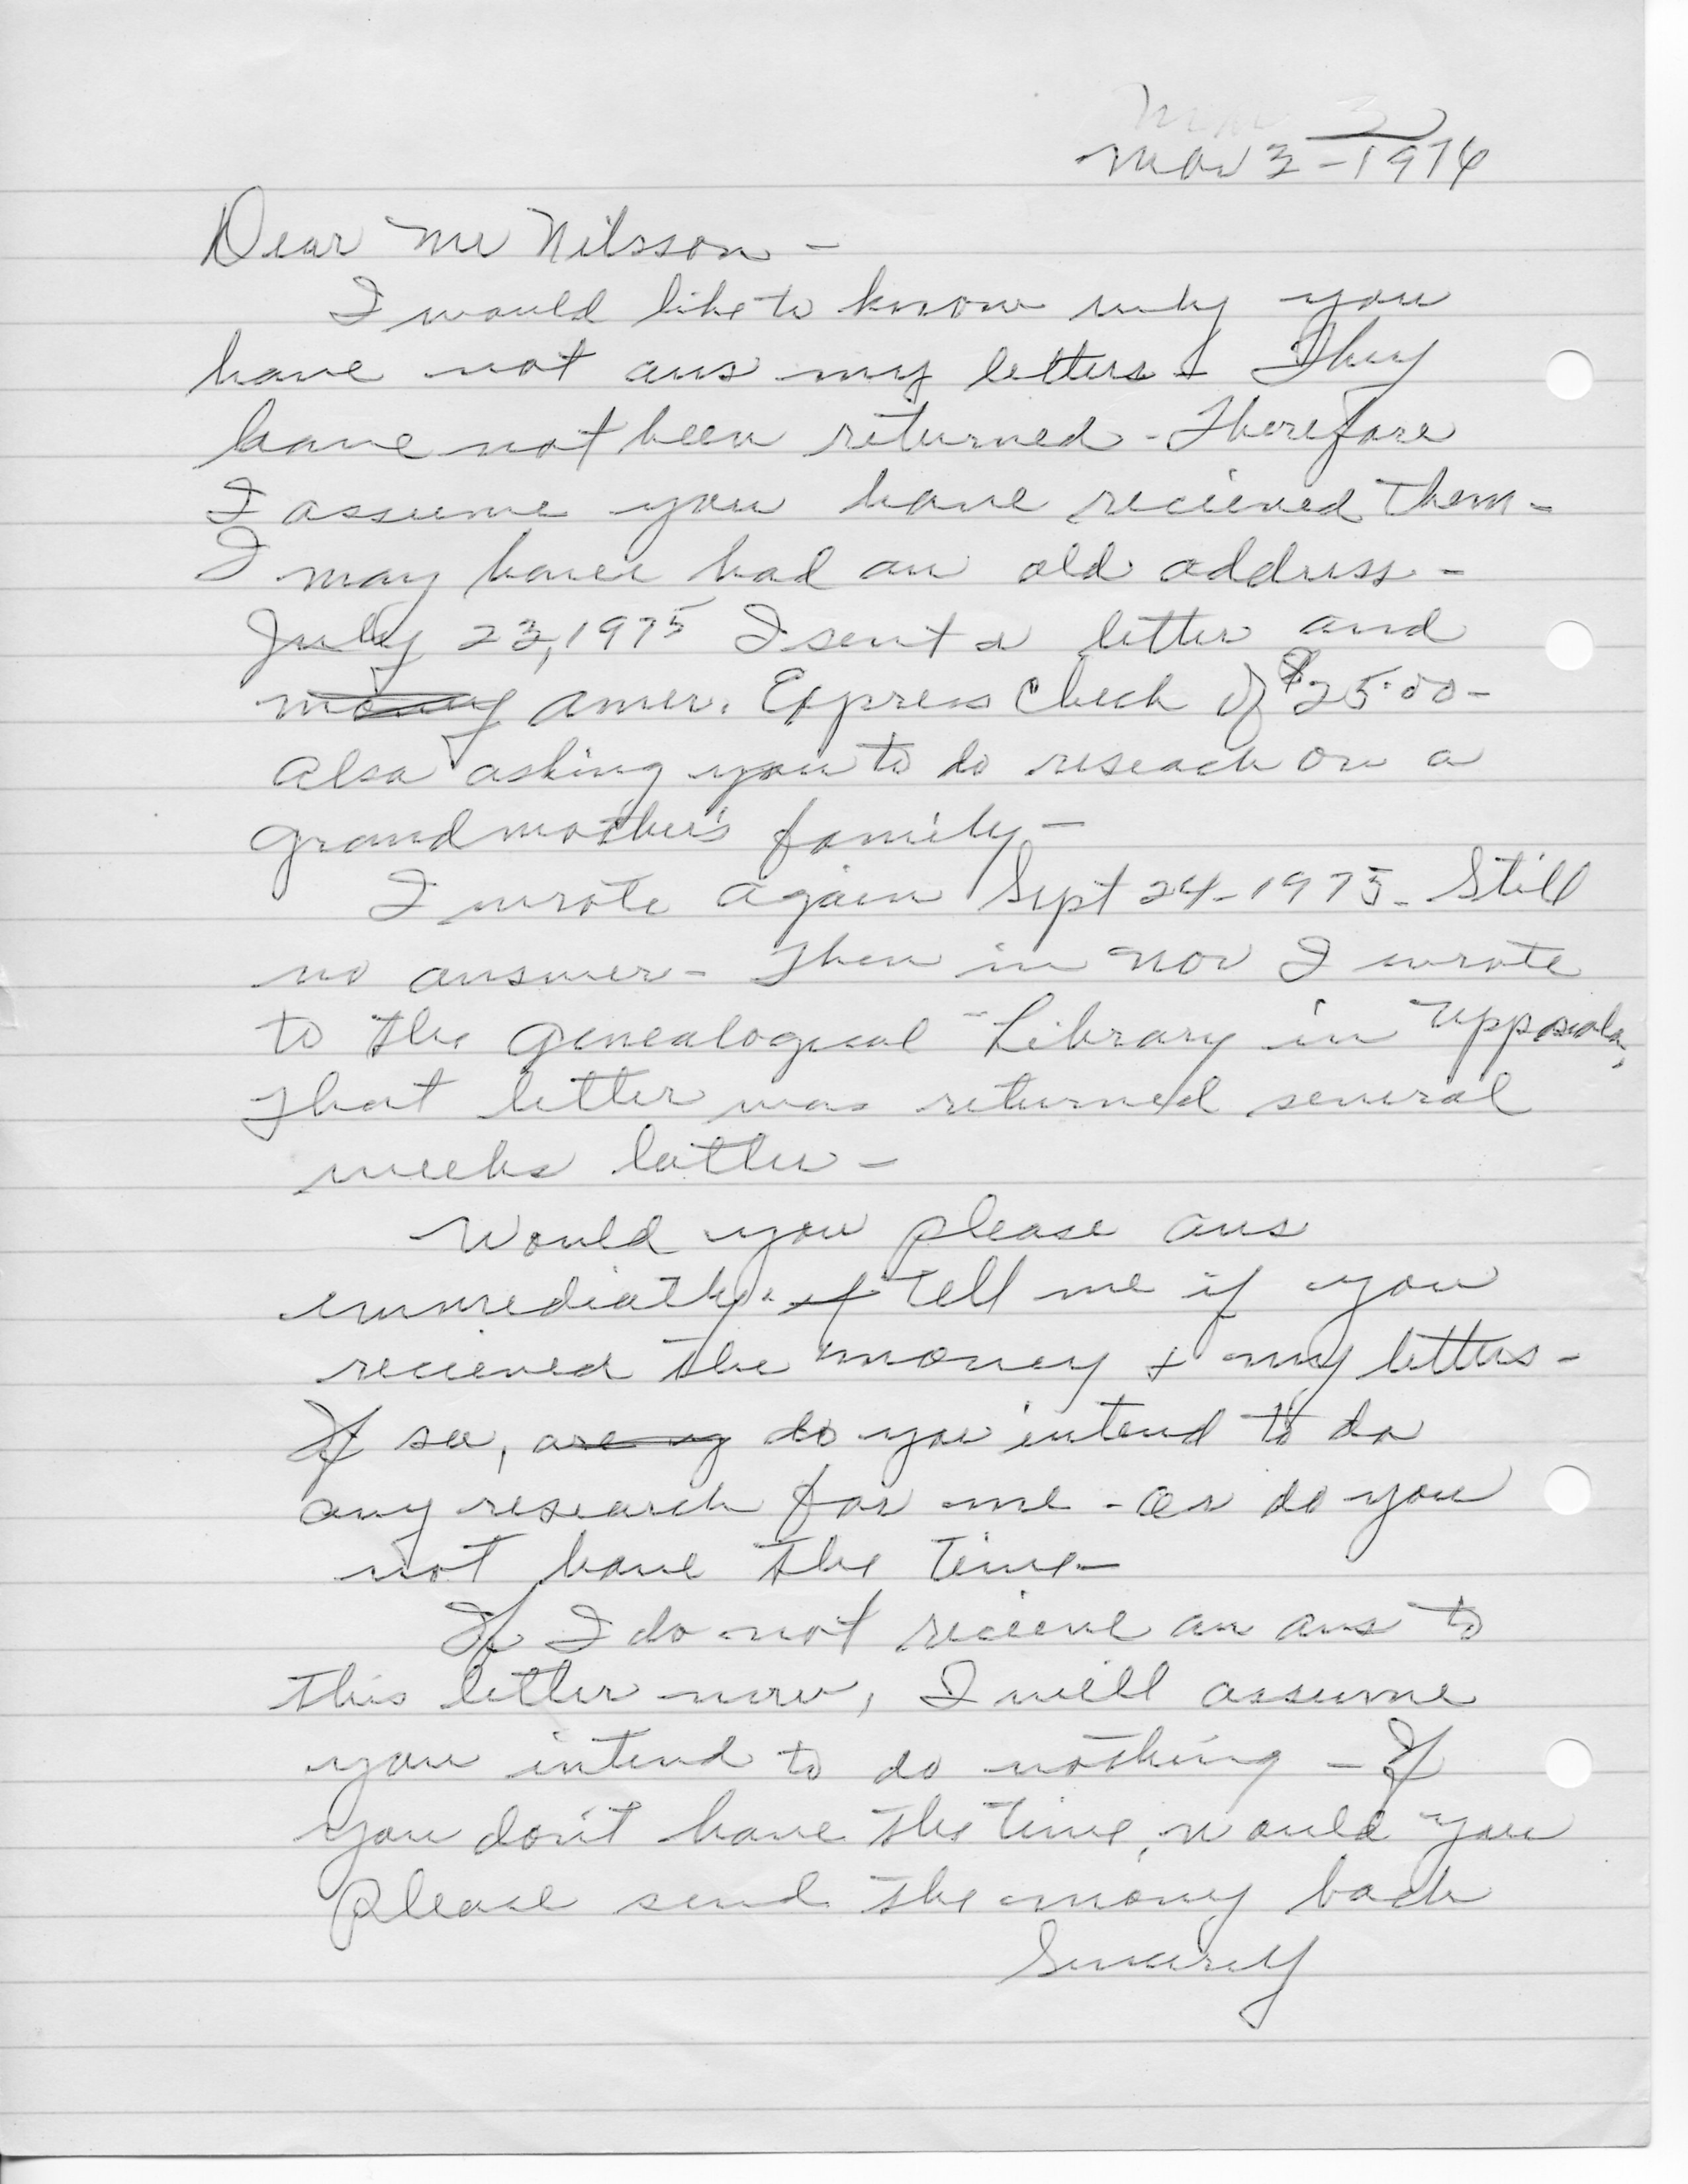 Mar 3 - 1976
Dear Mr Nilsson -
I would like to know why you
have not ans my letters. They
have not been returned - Therefore
I assume you have recieved them -
I may have had an old address -
July 23, 1975 I sent a letter and
money Amer. Express Check of $25.00 -
Also asking you to do reseach on a
grandmother's family -
I wrote again Sept 24 - 1975 - Still
no answer - Then in Nov I wrote
to the Genealogical Library in Uppsala,
That letter was returned several
weeks latter -
Would you please ans
immediatly. if Tell me if you
recieved the money + my letters -
If so, are y do you intend to do
any research for me - or do you
not have the time -
If I do not recieve an ans to
this letter now, I will assume
you intend to do nothing - If
you don't have the time, would you
please send the mony back
Sincerely